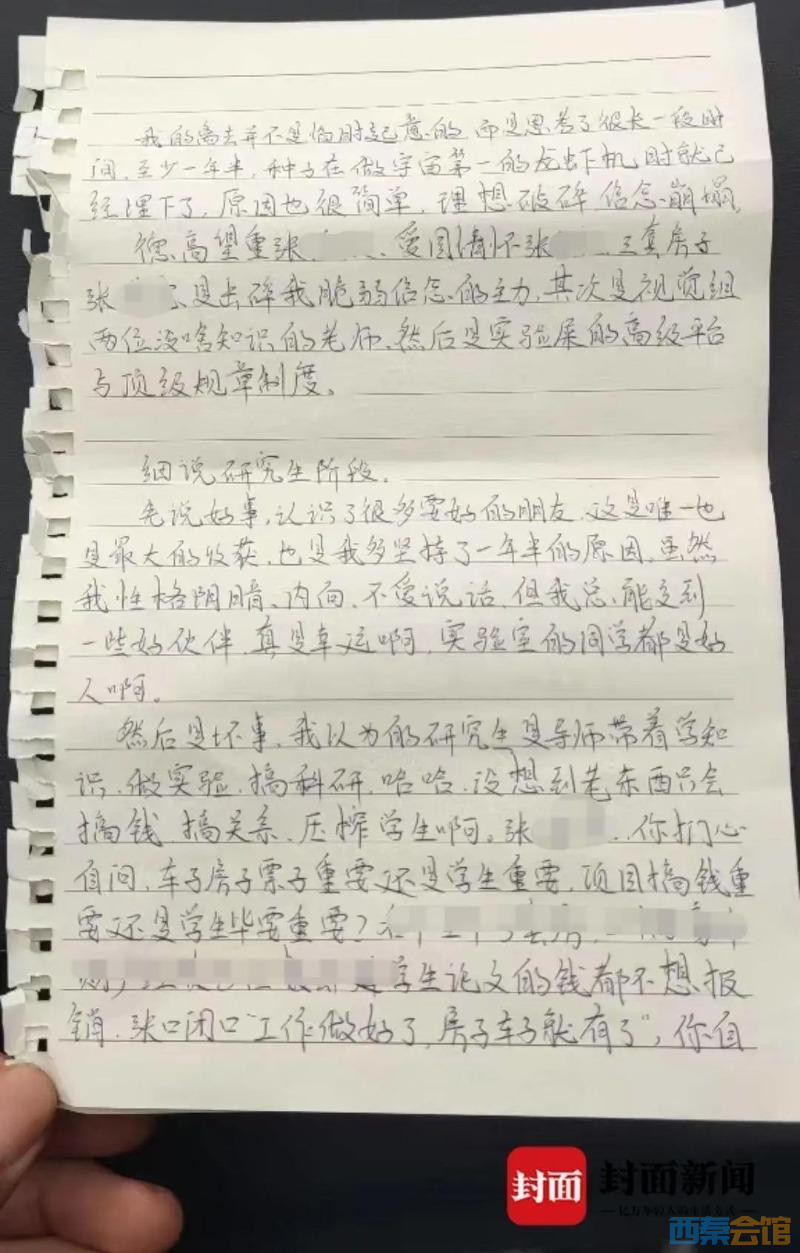 我的离去并不是临时起意的 而是思考了很长一段时
间，至少一年半，种子在做宇宙第一的龙虾机时就已
经埋下了，原因也很简单，理想破碎 信念崩塌。
德高望重张 爱国情怀张 三套房子
张 是击碎我脆弱信念的主力，其次是视觉组
两位没啥知识的老师，然后是实验屎的高级平台
与顶级规章制度。
细说研究生阶段.
先说好事，认识了很多要好的朋友，这是唯一也
是最大的收获，也是我多坚持了一年半的原因，虽然
我性格阴暗、内向、不爱说话，但我总能交到
一些好伙伴，真是幸运啊，实验室的同学都是好
人啊。
然后是坏事，我以为的研究生是导师带着学知
识、做实验、搞科研，哈哈，没想到老东西只会
搞钱、搞关系、压榨学生啊。张 ，你扪心
自问，车子房子票子重要还是学生重要，项目搞钱重
要还是学生毕要重要？
学生论文的钱都不想报
销，张口闭口“工作做好了，房子车子就有了”，你自
封面 封面新闻
亿万年轻人的生活方式
西秦会馆